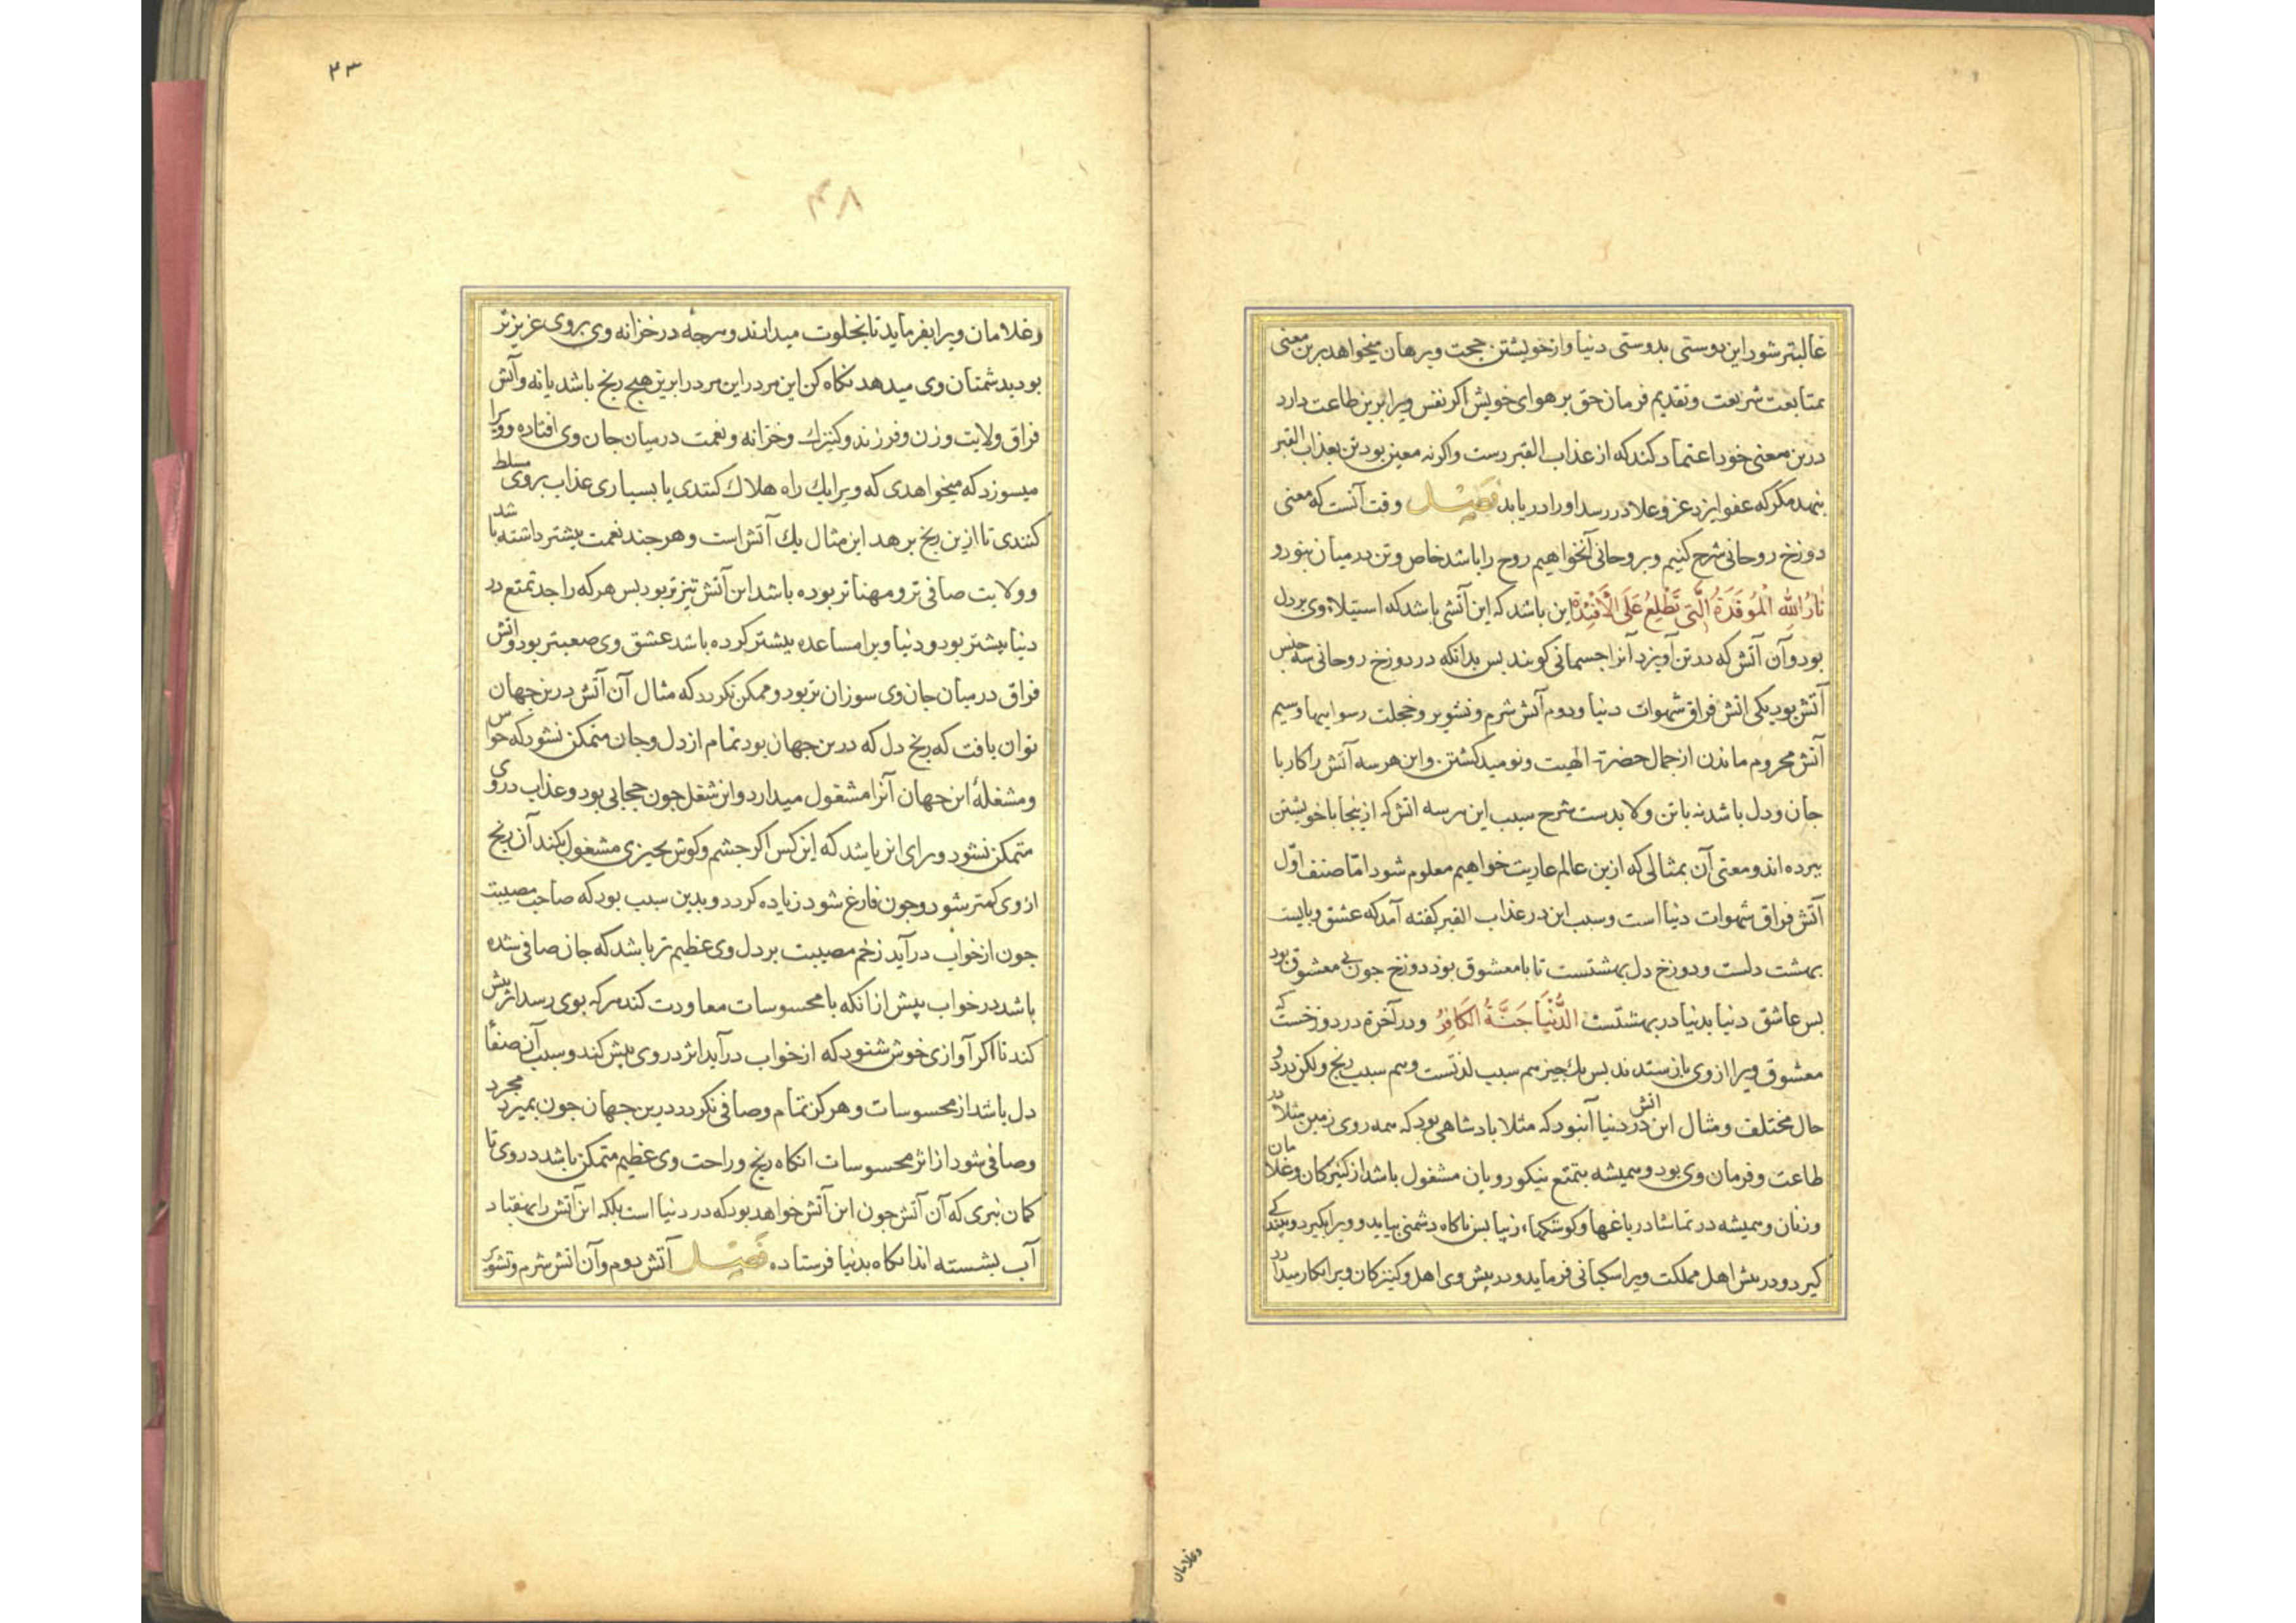 غالبتر شود این دوستی بدوستی دنیا و از خویشتن حجت و برهان میخواهد برین معنی
بمتابعت شریعت و تقدیم فرمان حق بر هوای خویش اکر نفس ویرا برین طاعت دارد
درین معنی خود اعتماد کند که از عذاب القبر رست و اکر نه معین بود تن بعذاب القبر
بنهد مکر که عفو ایزد عز و علا در رسد او را دریابد فصل وقت آنست که معنی
دوزخ روحانی شرح کنیم و بروحانی آنخواهیم روح را باشد خاص و تن در میان نبود و
نَارُ اللهِ الْمُوقَدَةُ الَّتِی تَطَّلِعُ عَلَی الْأَفْئِدَةِ این باشد که این آتشی باشد که استیلاء وی بر دل
بود و آن آتش که در تن آویزد آنرا جسمانی کویند بس بدانکه در دوزخ روحانی سه جنس
آتش بود یکی اتش فراق شهوات دنیا و دوم آتش شرم و تشویر و خجلت رسواییها و سیم
آتش محروم ماندن از جمال حضرت الهیت و نومید کشتن و این هر سه آتش را کار با
جان و دل باشد نه با تن و لابدست شرح سبب این هر سه اتش که ازینجا با خویشتن
ببرده اند و معنی آن بمثالی که ازین عالم عاریت خواهیم معلوم شود امّا صنف اوّل
آتش فراق شهوات دنیا است و سبب این در عذاب القبر کفته آمد که عشق و بایست
بهشت دلست و دوزخ دل بهشتست تا با معشوق بود دوزخ جون بی معشوق بود
بس عاشق دنیا بدنیا در بهشتست الدُّنْیَا جَنَّةُ الکَافِرُ و در آخرة در دوزخست که
معشوق ویرا از وی باز ستدند بس یک جیز هم سبب لذتست و هم سبب رنج ولکن در دو
حال مختلف و مثال این اتش در دنیا آنبود که مثلا بادشاهی بود که همه روی زمین مثلا در
طاعت و فرمان وی بود و همیشه بتمتع نیکو رویان مشغول باشد از کنیزکان و غلامان
و زنان و همیشه در تماشا در باغها و کوشکهاء زیبا بس ناکاه دشمنی بیاید و ویرا بکیرد و ببندکی
کیرد و در بیش اهل مملکت ویرا سکبانی فرماید و در پیش وی اهل و کنیزکان ویرا بکار میدارد
وغلامان
۴۳
۴۸
و غلامان ویرا بفرماید تا بخلوت میدارند و هرجه در خزانه وی بروی عزیزتر
بود بدشمنان وی میدهد نکاه کن این مرد را برین هیچ رنج باشد یا نه و آتش
فراق ولایت و زن و فرزند و کنیزک و خزانه و نعمت در میان جان وی افتاده و ویرا
میسوزد که میخواهدی که ویرا بیک راه هلاک کنندی یا بسیاری عذاب بر وی مسلط
کنندی تا ازین رنج برهد این مثال یک آتش است و هر جند نعمت بیشتر داشته باشد
و ولایت صافی تر و مهناتر بوده باشد این آتش تیزتر بود بس هر که را جد تمتع در
دنیا بیشتر بود و دنیا ویرا مساعده بیشتر کرده باشد عشق وی صعبتر بود و اتش
فراق در میان جان وی سوزان تر بود و ممکن نکردد که مثال آن آتش درین جهان
توان یافت که رنج دل که درین جهان بود تمام از دل و جان متمکن نشود که حواس
و مشغلهٔ این جهان آنرا مشغول میدارد و این شغل جون حجابی بود و عذاب در وی
متمکن نشود و برای این باشد که این کس اکر جشم و کوش بجیزی مشغول بکند آن رنج
از وی کمتر شود و جون فارغ شود زیاده کردد و بدین سبب بود که صاحب مصیبت
جون از خواب درآید زخم مصیبت بر دل وی عظیم تر باشد که جان صافی شده
باشد در خواب پیش از انکه با محسوسات معاودت کند هر که بوی رسد اثر بیش
کند تا اکر آوازی خوش شنود که از خواب درآید اثر در وی بیش کند و سبب آن صفاء
دل باشد از محسوسات و هرکز تمام و صافی نکردد درین جهان جون بمیرد مجرد
و صافی شود از اثر محسوسات انکاه رنج و راحت وی عظیم متمکن باشد در وی تا
کمان نبری که آن آتش جون این آتش خواهد بود که در دنیا است بلکه این آتش را بهفتاد
آب بشسته اند انکاه بدنیا فرستاده فصل آتش دوم و آن اتش شرم و تشویر